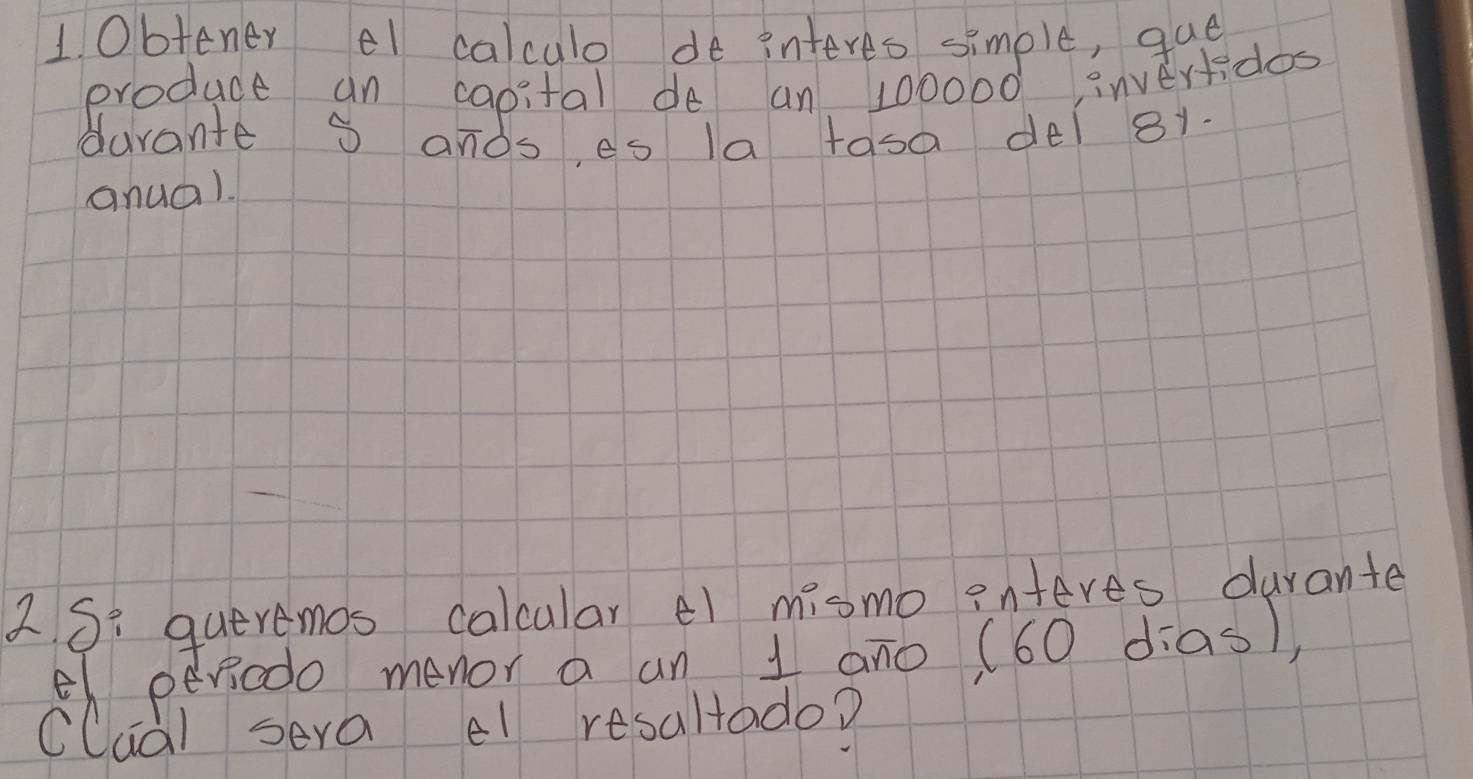 1. Obtener el calculo de interes simple, que
produce un capital de un 100000, invertidos
durante 5 años, es la tasa del 8%.
anual.
2. Si queremos calcular el mismo interes durante
el periodo menor a un 1 año (60 dias),
Cuál sera el resultado?